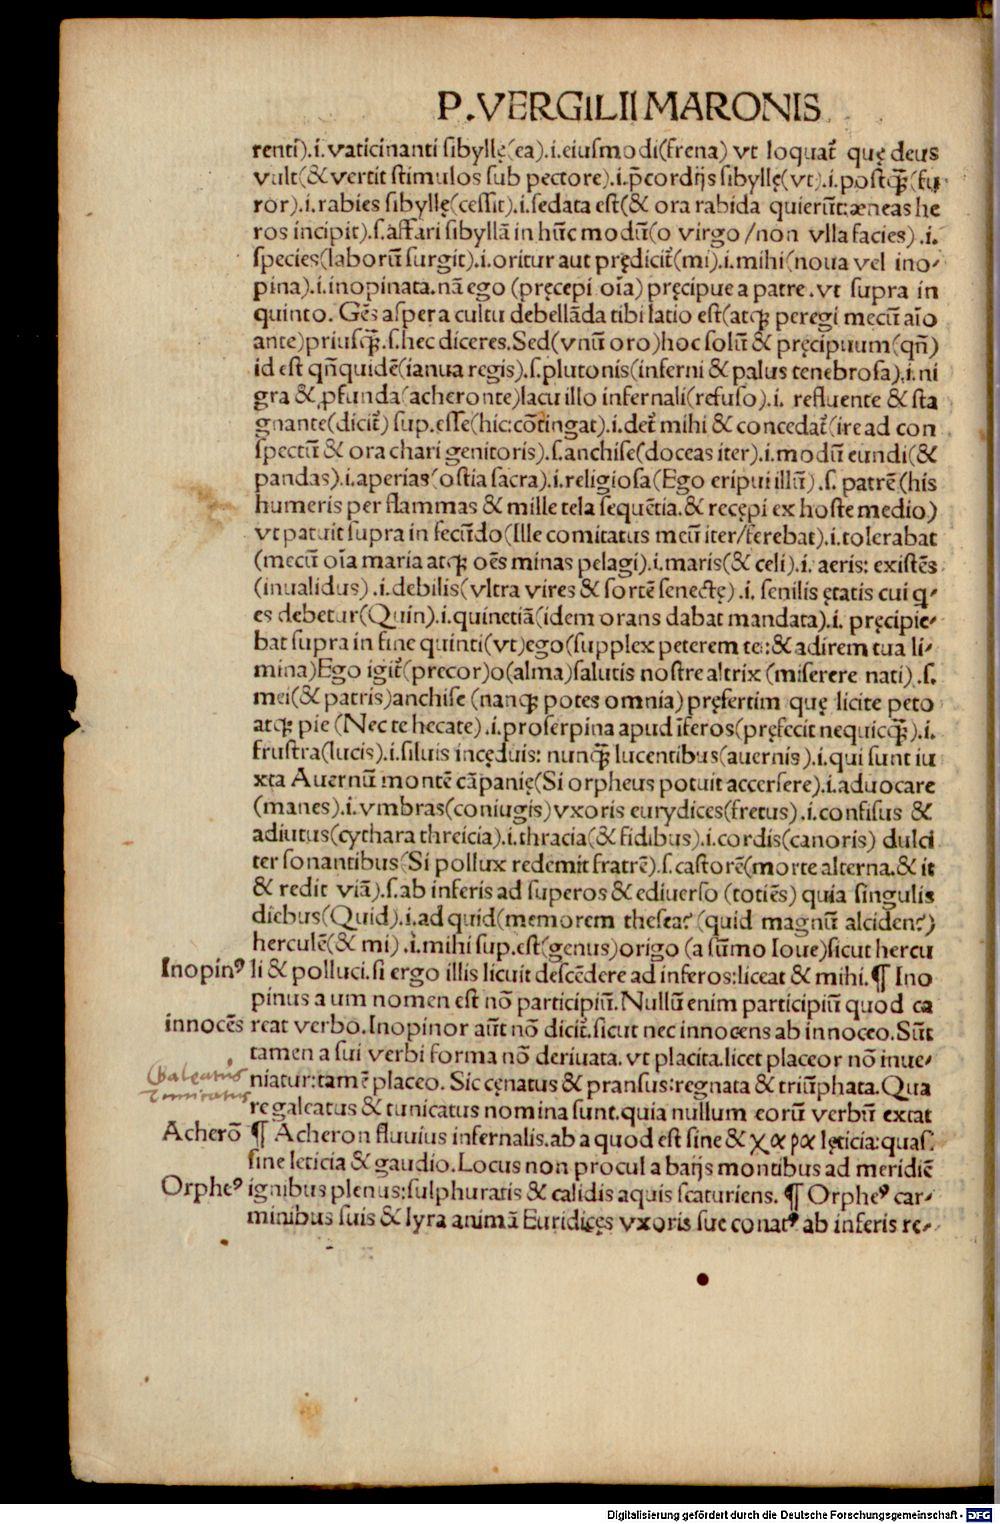 P. VERGILII MARONIS
renti).i.vaticinanti sibyllę(ea).i.eiusmodi(frena) vt loquat᷑ quę deus
vult(& vertit stimulos sub pectore).i.p̄cordijs sibyllę(vt).i.postꝙ̄ (fu
ror).i.rabies sibyllę(cessit).i.sedata est(& ora rabida quierūt:æneas he
ros incipit).s.affari sibyllā in hūc modū(o virgo/non vlla facies).i.
species(laborū surgit).i.oritur aut prędicit᷑(mi).i.mihi(noua vel ino⸗
pina).i.inopinata.nā ego (pręcepi oīa) pręcipue a patre.vt supra in
quinto. Gēs aspera cultu debellāda tibi latio est(atqꝫ peregi mecū aīo
ante)priusꝙ̄.s.hec diceres.Sed(vnū oro)hoc solū & pręcipuum(qn̄)
id est qn̄quidē(ianua regis).s.plutonis(inferni & palus tenebrosa).i.ni
gra & ꝓfunda(acheronte)lacu illo infernali(refuso).i. refluente & sta
gnante(dicit᷑)sup.esse(hic:cōtingat).i.det᷑ mihi & concedat᷑(ire ad con
spectū & ora chari genitoris).s.anchise(doceas iter).i.modū eundi(&
pandas).i.aperias(ostia sacra).i.religiosa(Ego eripui illū).s. patrē(his
humeris per flammas & mille tela sequētia.& recępi ex hoste medio)
vt patuit supra in secūdo(Ille comitatus meū iter/ferebat).i.tolerabat
(mecū oīa maria atqꝫ oēs minas pelagi).i.maris(& celi).i.aeris: existēs
(inualidus).i.debilis(vltra vires & sortē senectę).i. senilis ętatis cui q⸗
es debetur(Quin).i.quinetiā(idem orans dabat mandata).i. pręcipie⸗
bat supra in fine quinti(vt)ego(supplex peterem te::& adirem tua li⸗
mina)Ego igit᷑(precor)o(alma)salutis nostre altrix (miserere nati).s.
mei(& patris)anchise (nanqꝫ potes omnia) pręsertim quę licite peto
atqꝫ pie (Nec te hecate).i.proserpina apud īferos(pręfecit nequicꝙ̄).i.
frustra(lucis).i.siluis incęduis: nunꝙ̄ lucentibus(auernis).i.qui sunt iu
xta Auernū montē cāpanię(Si orpheus potuit accersere).i.aduocare
(manes).i.vmbras(coniugis)vxoris eurydices(fretus).i.confisus &
adiutus(cythara threicia).i.thracia(& fidibus).i.cordis(canoris) dulci
ter sonantibus(Si pollux redemit fratrē).s.castorē(morte alterna.& it
& redit viā).s.ab inferis ad superos & ediuerso (totiēs) quia singulis
diebus(Quid).i.ad quid(memorem thesea?(quid magnū alciden?)
herculē(& mi).i.mihi sup.est(genus)origo (a sūmo Ioue)sicut hercu
Inopinꝰ li & polluci.si ergo illis licuit descēdere ad inferos:liceat & mihi.¶ Ino
pinus a um nomen est nō participiū.Nullū enim participiū quod ca
innocēs reat verbo.Inopinor aūt nō dicit᷑.sicut nec innocens ab innoceo.Sūt
tamen a sui verbi forma nō deriuata.vt placita.licet placeor nō inue⸗
Galeatus niatur:tamē placeo. Sic cęnatus & pransus:regnata & triūphata.Qua
Tunicatus re galeatus & tunicatus nomina sunt.quia nullum eorū verbū extat
Acherō ¶ Acheron fluuius infernalis.ab a quod est sine & χαρα lęticia:quas.
sine leticia & gaudio.Locus non procul a baijs montibus ad meridiē
Orpheꝰ ignibus plenus:sulphuratis & calidis aquis scaturiens. ¶ Orpheꝰ car⸗
minibus suis & lyra animā Euridicęs vxoris sue conatꝰ ab inferis re⸗
Digitalisierung gefördert durch die Deutsche Forschungsgemeinschaft - DFG